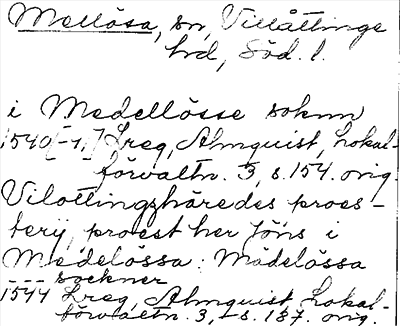 Mellösa, sn, Villåttinge
hd, Söd. l.
i Medellösse soknn
1540[-1] Lreg, Almquist, Lokal-
förvaltn. 3, s. 154. orig.
Vilottingzhäredes proes-
terij, proest her Jöns i
Medelössa: Mädelössa
sockner
1544 Lreg, Almquist, Lokal-
förvaltn. 3, s. 187. orig.